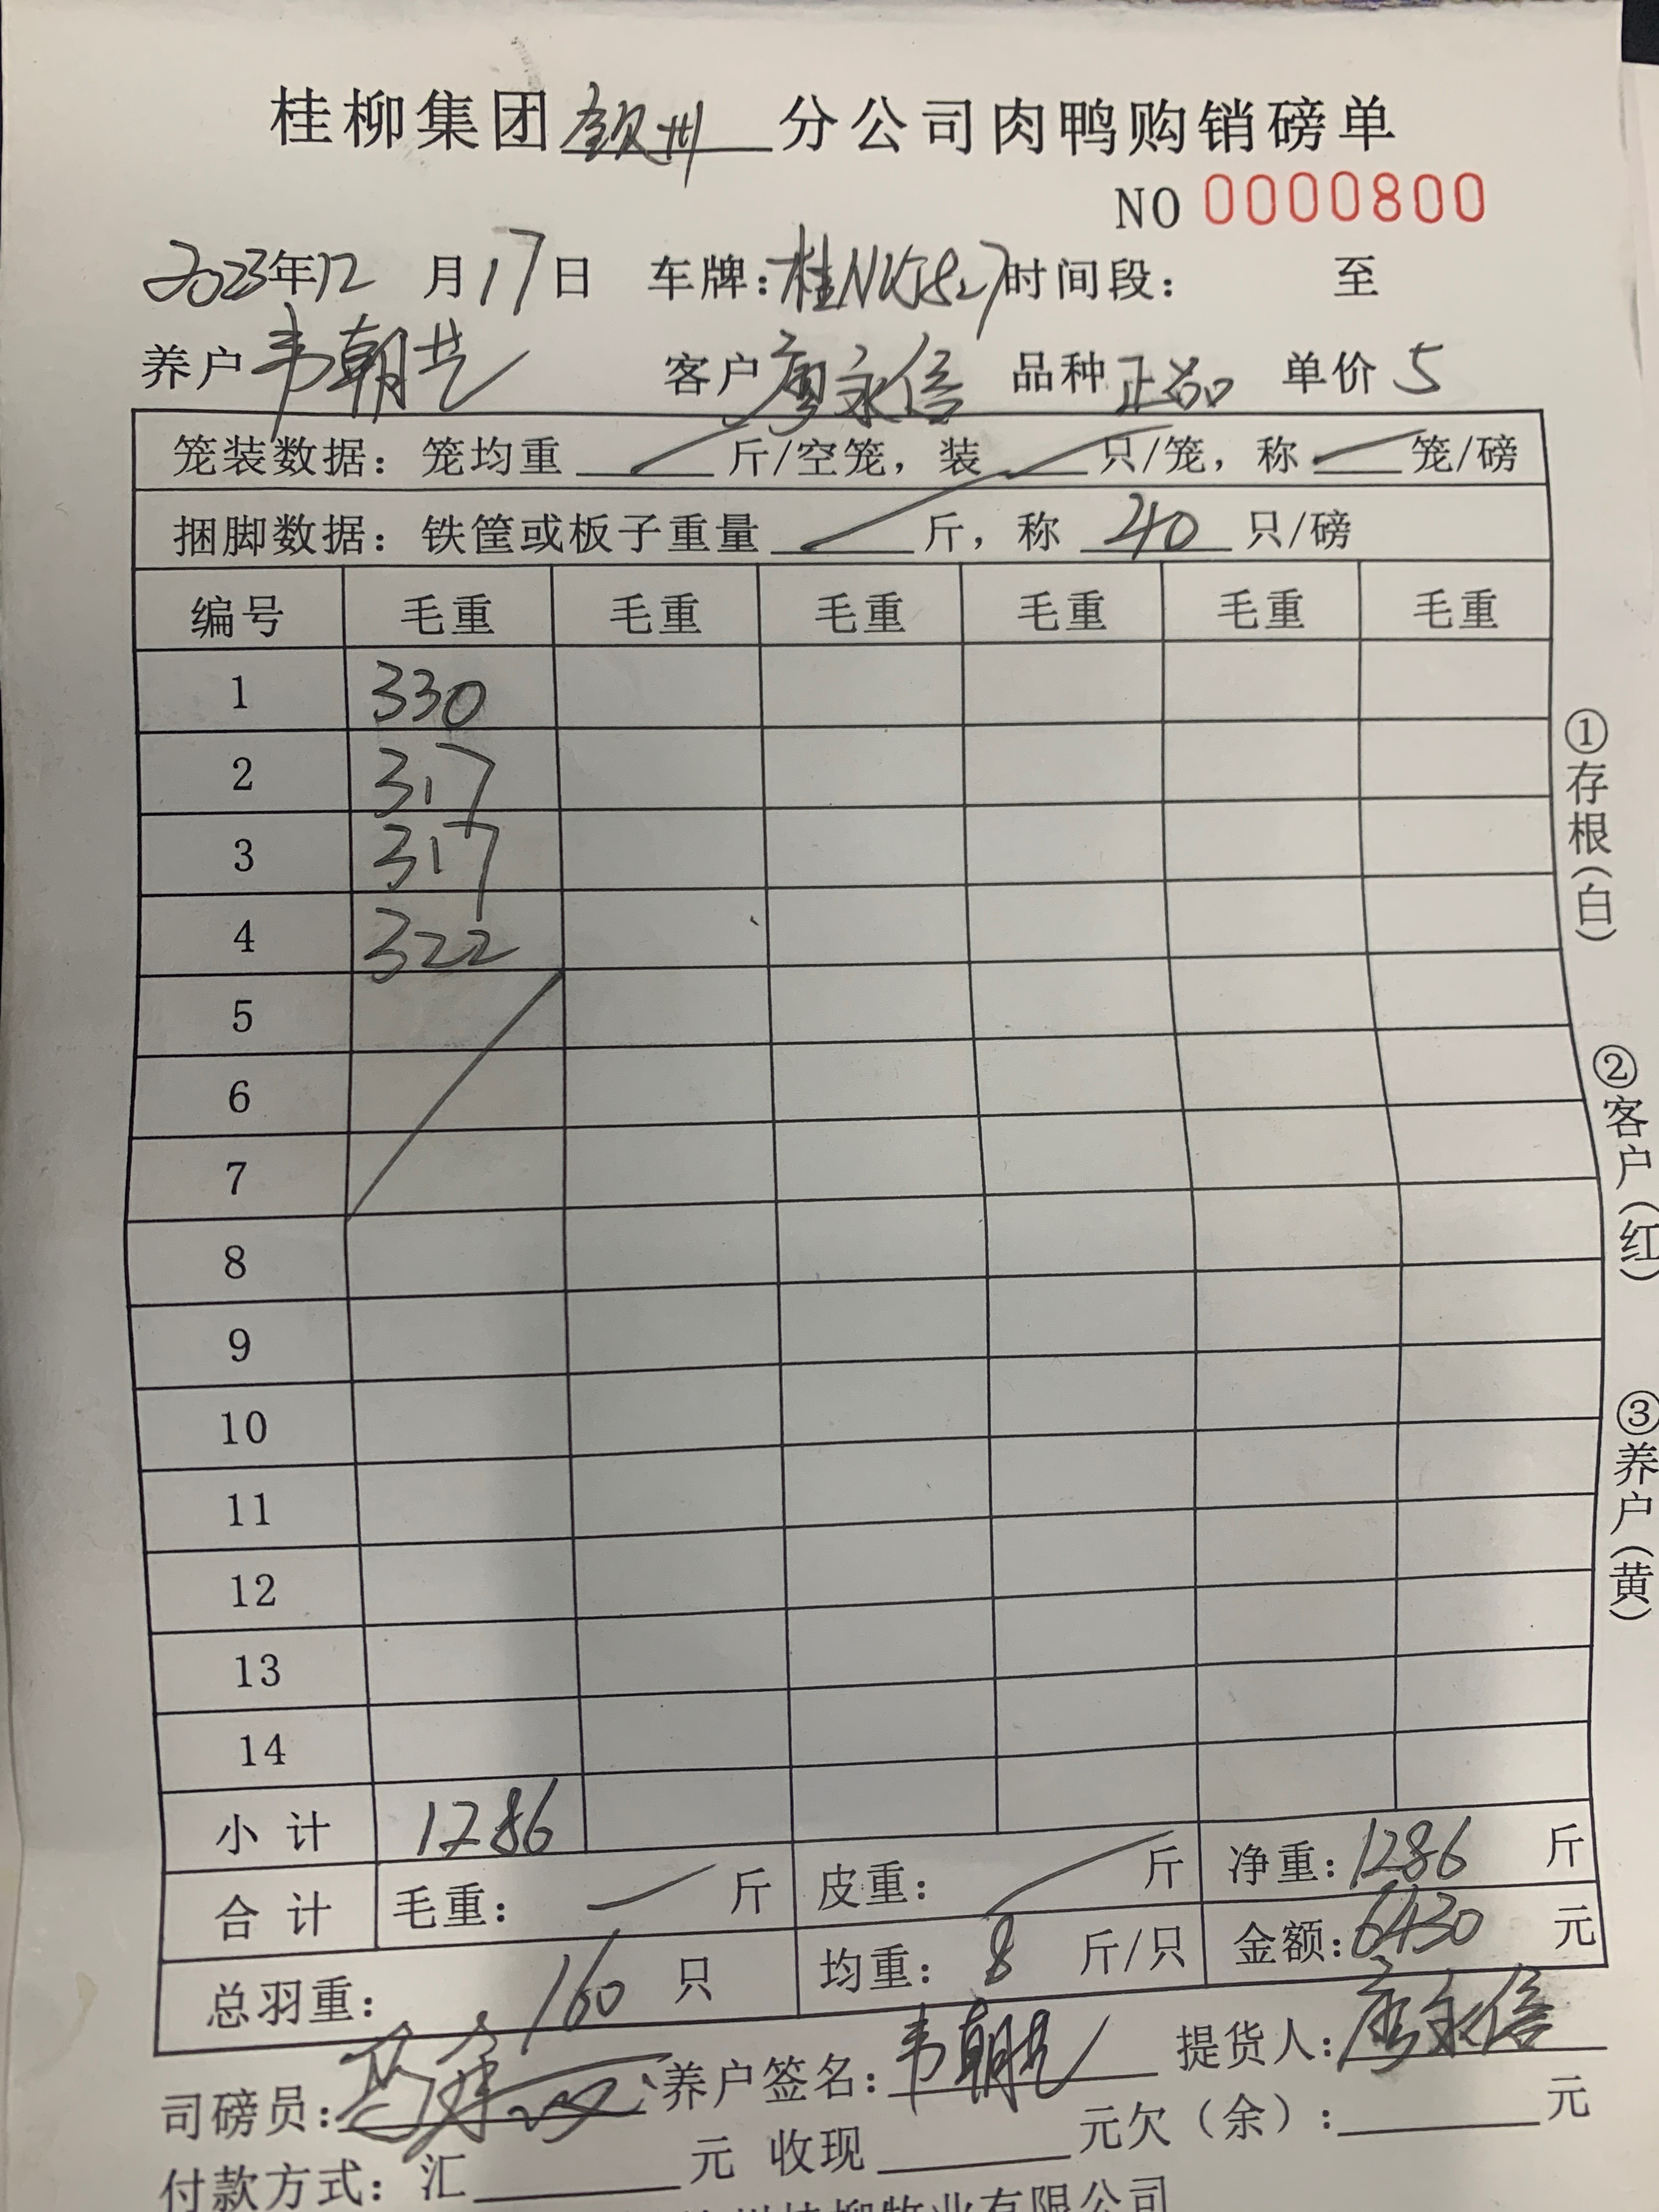 桂柳集团钦州分公司肉鸭购销磅单
NO 0000800
2023年12月17日 车牌：桂NKJ827 时间段： 至
养户 韦朝艺 客户 廖永信 品种 正品 单价 5
笼装数据：笼均重 斤/空笼，装 只/笼，称 笼/磅
捆脚数据：铁筐或板子重量 斤，称 40 只/磅
编号 毛重 毛重 毛重 毛重 毛重 毛重
1 330
2 317
3 317
4 322
5
6
7
8
9
10
11
12
13
14
小计 1286
合计 毛重： 斤 皮重： 斤 净重：1286 斤
总羽重：160 只 均重：8 斤/只 金额：6430 元
司磅员： 养户签名：韦朝艺 提货人：廖永信
付款方式：汇 元 收现 元欠（余）： 元
柳牧业有限公司
①存根（白）
②客户（红）
③养户（黄）